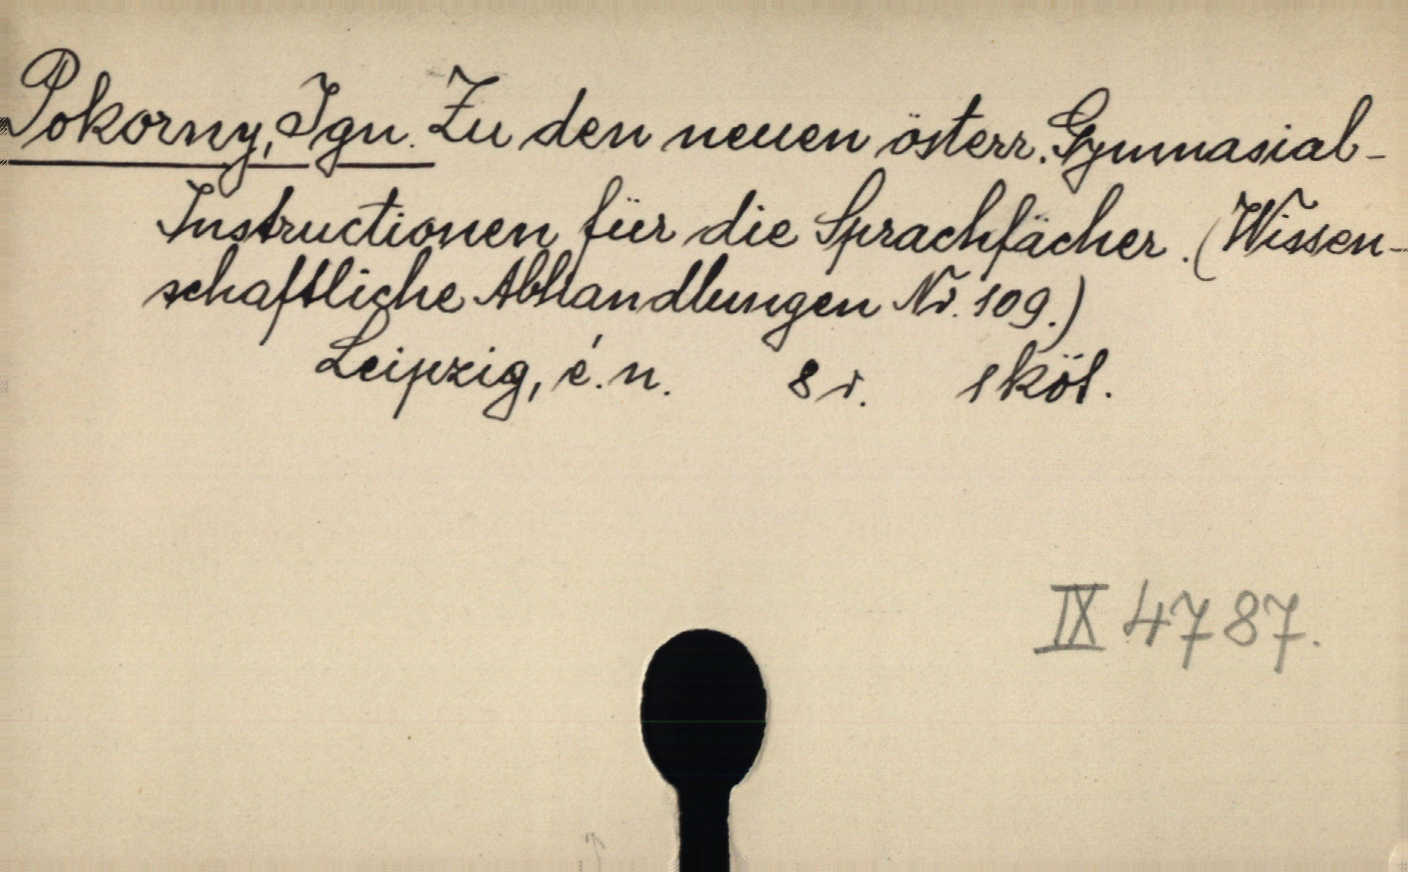 Pokorny, Ign. Zu den neuen österr. Gymnasial-
Instructionen für die Sprachfächer. (Wissen-
schaftliche Abhandlungen Nr. 109.)
Leipzig, é. n. 8 r. 1 köt.
IX 4787.